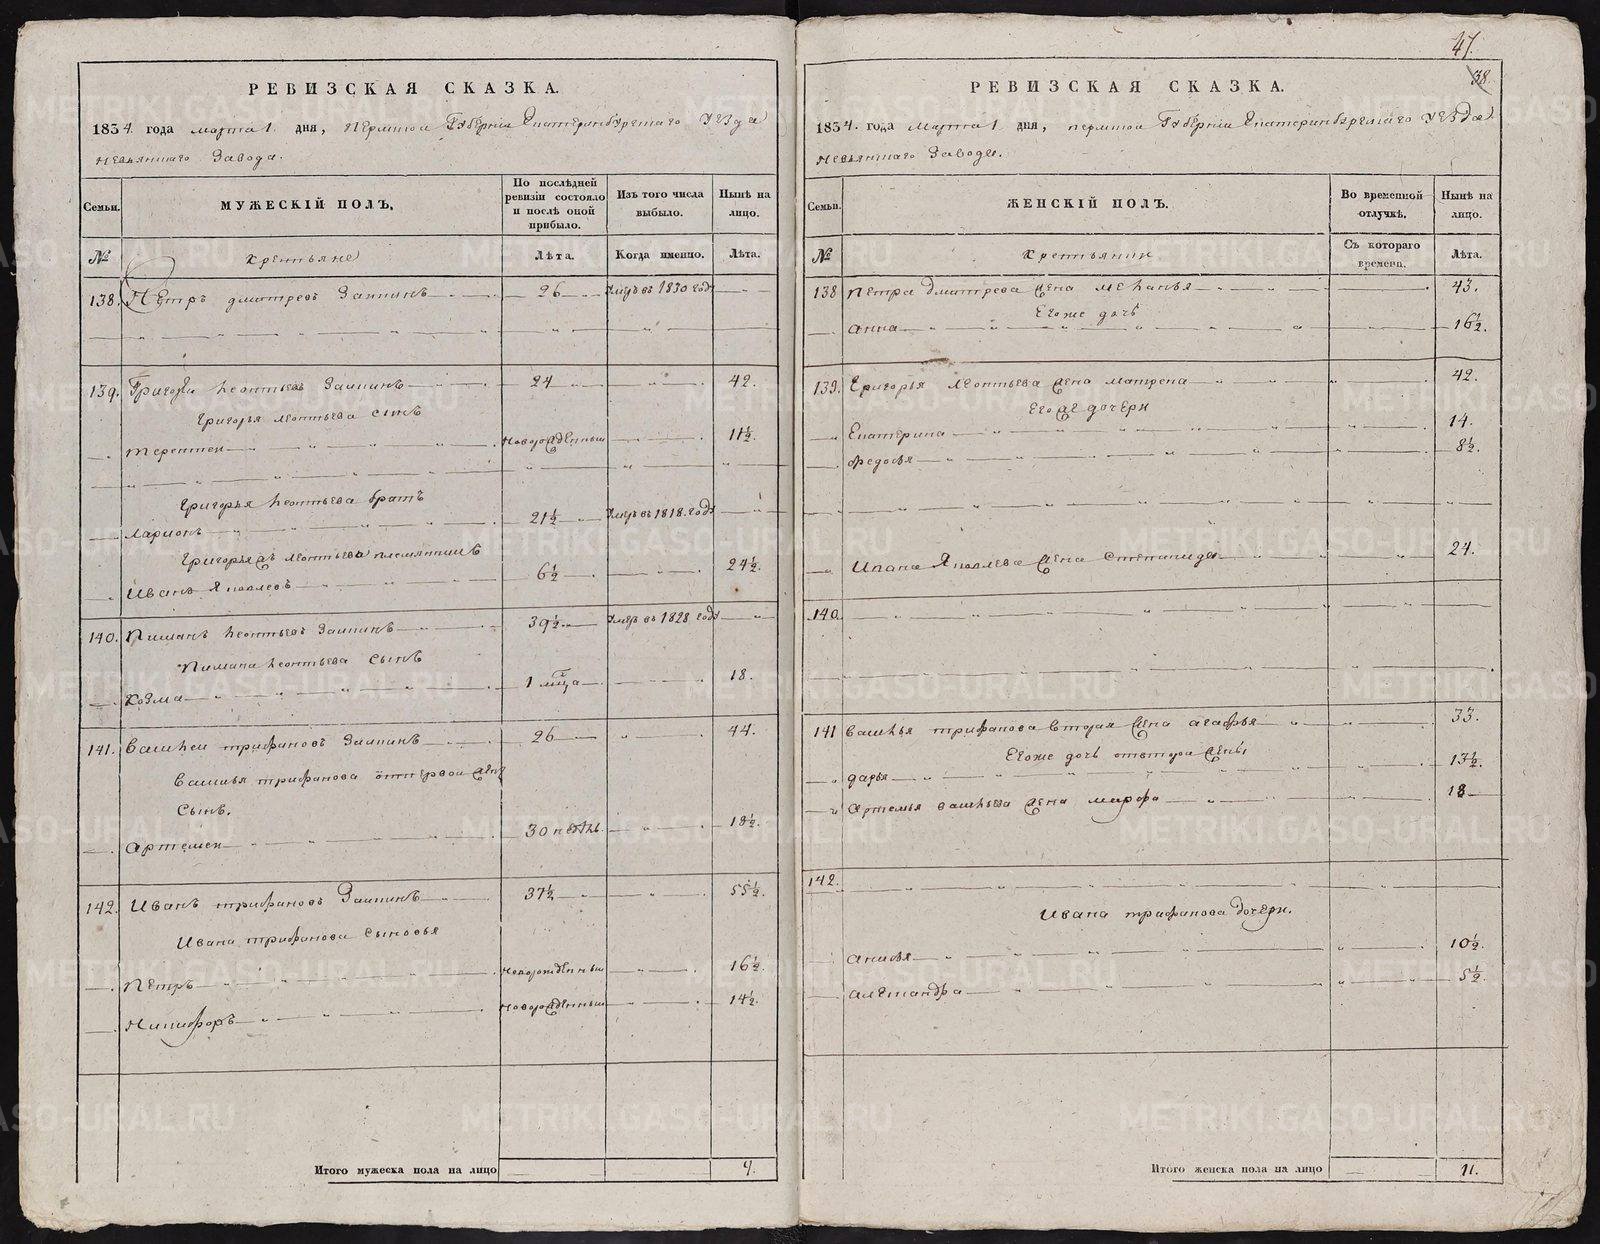 РЕВИЗСКАЯ СКАЗКА.
1834. года марта 1. дня, пермской Губерніи Екатеринбургскаго Уезда
невьянскаго Завода.
Семьи.
МУЖЕСКІЙ ПОЛЪ.
По послѣдней ревизіи состояло и послѣ оной прибыло.
Изъ того числа выбыло.
Нынѣ на лицо.
№ крестьяне Лѣта. Когда именно. Лѣта.
138. Петръ дмитревъ 26 Умръ въ 1830 году
139. Григорѣй Леонтьевъ 24 42.
Григорья леонтьева сынъ
терентей новорожденный 11½.
Григорья Леонтьева братъ
Ларионъ 21½ Умръ въ 1818. году
Григорья жъ леонтьева племянникъ
Иванъ Яковлевъ 6½ 24½.
140. Пиманъ Леонтьевъ 39½ Умръ въ 1828 году
Пимана Леонтьева сынъ
Козма 1 мца 18.
141. василей трифановъ 26 44.
василья трифанова отпервой жены
сынъ.
Артемей 30 недѣль 18½.
142. Иванъ трифановъ 37½ 55½.
Ивана трифанова сыновья
Петръ новорожденный 16½.
Никифоръ новорожденный 14½.
Итого мужеска пола на лицо 9.
47.
38.
РЕВИЗСКАЯ СКАЗКА.
1834. года марта 1 дня, пермской Губерніи Екатеринбургскаго Уезда
невьянскаго Завода.
Семьи.
ЖЕНСКІЙ ПОЛЪ.
Во временной отлучкѣ.
Нынѣ на лицо.
№ крестьянки Съ котораго времени. Лѣта.
138 петра дмитрева жена меланья 43.
Егоже дочь
анна 16½.
139. Григорья леонтьева жена матрена 42.
Его же дочери
Екатерина 14.
федосья 8½.
Ивана Яковлева жена степанида 24.
140.
141 василья трифанова вторая жена агафья 33.
Егоже дочь отвторой жены
дарья 13½.
артемья васильева жена марфа 18
142.
Ивана трифанова дочери.
анисья 10½.
александра 5½.
Итого женска пола на лицо 11.
METRIKI.GASO-URAL.RU